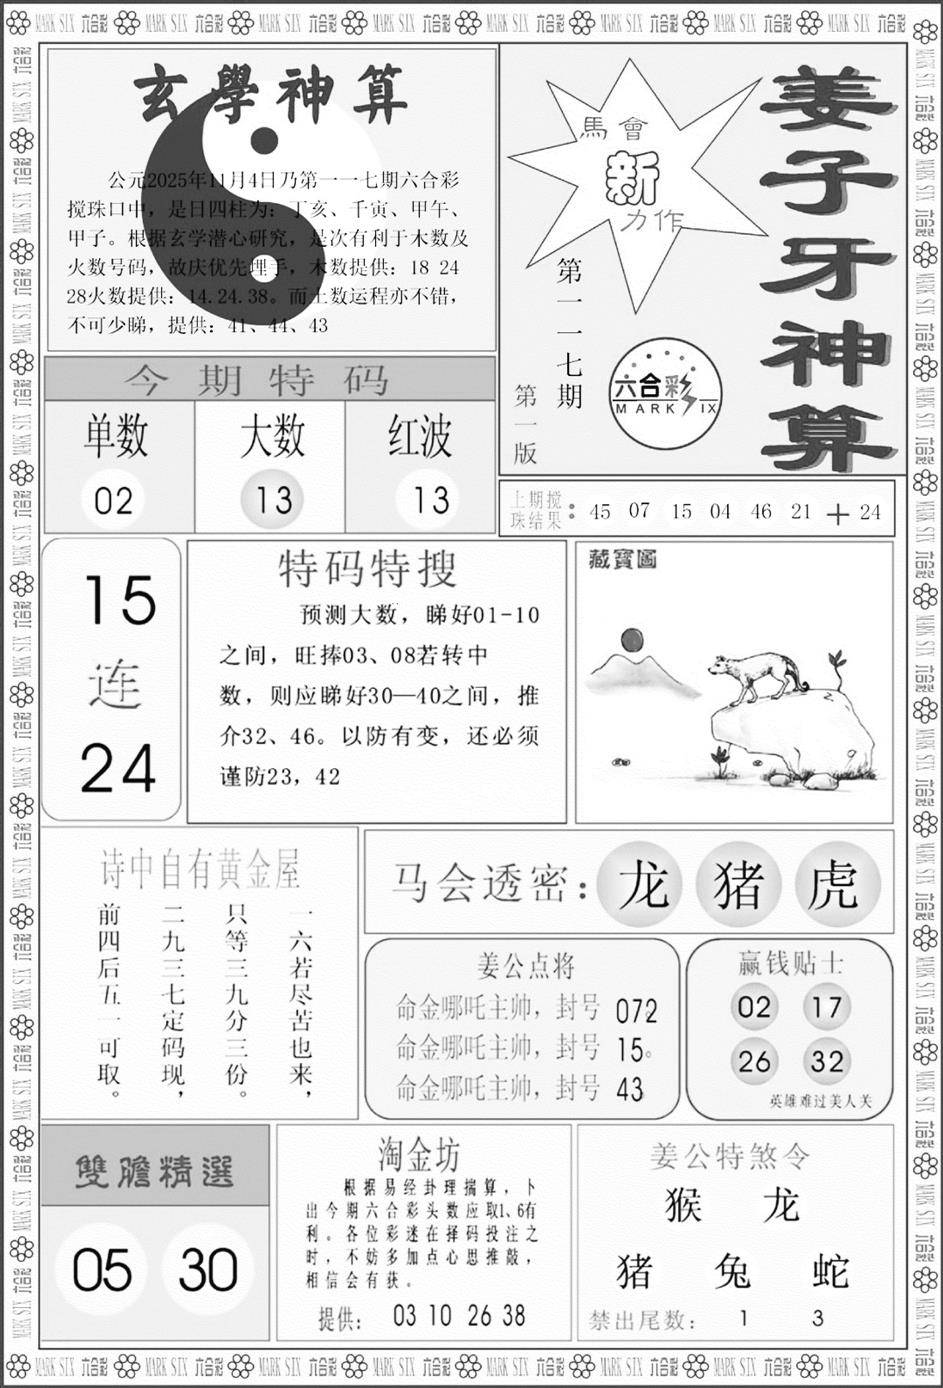 玄學神算
公元2025年11月4日乃第一一七期六合彩
搅珠口中，是日四柱为：丁亥、千寅、甲午、
甲子。根据玄学潜心研究，是次有利于木数及
火数号码，故庆优先埋手，木数提供：18 24
28火数提供：14.24.38。而土数运程亦不错，
不可少睇，提供：41、44、43
馬會
新
力作
第一一七期
第一版
姜子牙神算
六合彩
MARK SIX
今期特码
单数 大数 红波
02 13 13
上期搅
珠结果：45 07 15 04 46 21 + 24
15
连
24
特码特搜
预测大数，睇好01-10
之间，旺捧03、08若转中
数，则应睇好30—40之间，推
介32、46。以防有变，还必须
谨防23，42
藏寶圖
诗中自有黄金屋
一六若尽苦也来，
只等三九分三份。
二九三七定码现，
前四后五一可取。
马会透密：龙 猪 虎
姜公点将
命金哪吒主帅，封号 072
命金哪吒主帅，封号 15。
命金哪吒主帅，封号 43
赢钱贴士
02 17
26 32
英雄难过美人关
雙膽精選
05 30
淘金坊
根据易经卦理揣算，卜
出今期六合彩头数应取1、6有
利。各位彩迷在择码投注之
时，不妨多加点心思推敲，
相信会有获。
提供： 03 10 26 38
姜公特煞令
猴 龙
猪 兔 蛇
禁出尾数： 1 3